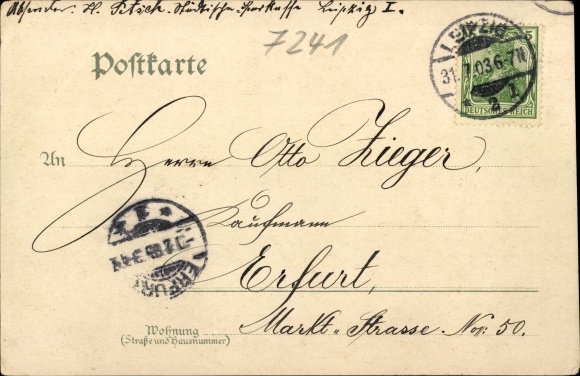 Absender: H. Pitsch. Städtische Sparkasse Leipzig I.
7241
Postkarte
LEIPZIG
31.7.03.6-7N
* 2 I.
5
DEUTSCHES REICH
An Herrn Otto Zieger,
Kaufmann
Erfurt,
ERFURT
Markt-Strasse No: 50.
Wohnung
(Straße und Hausnummer)